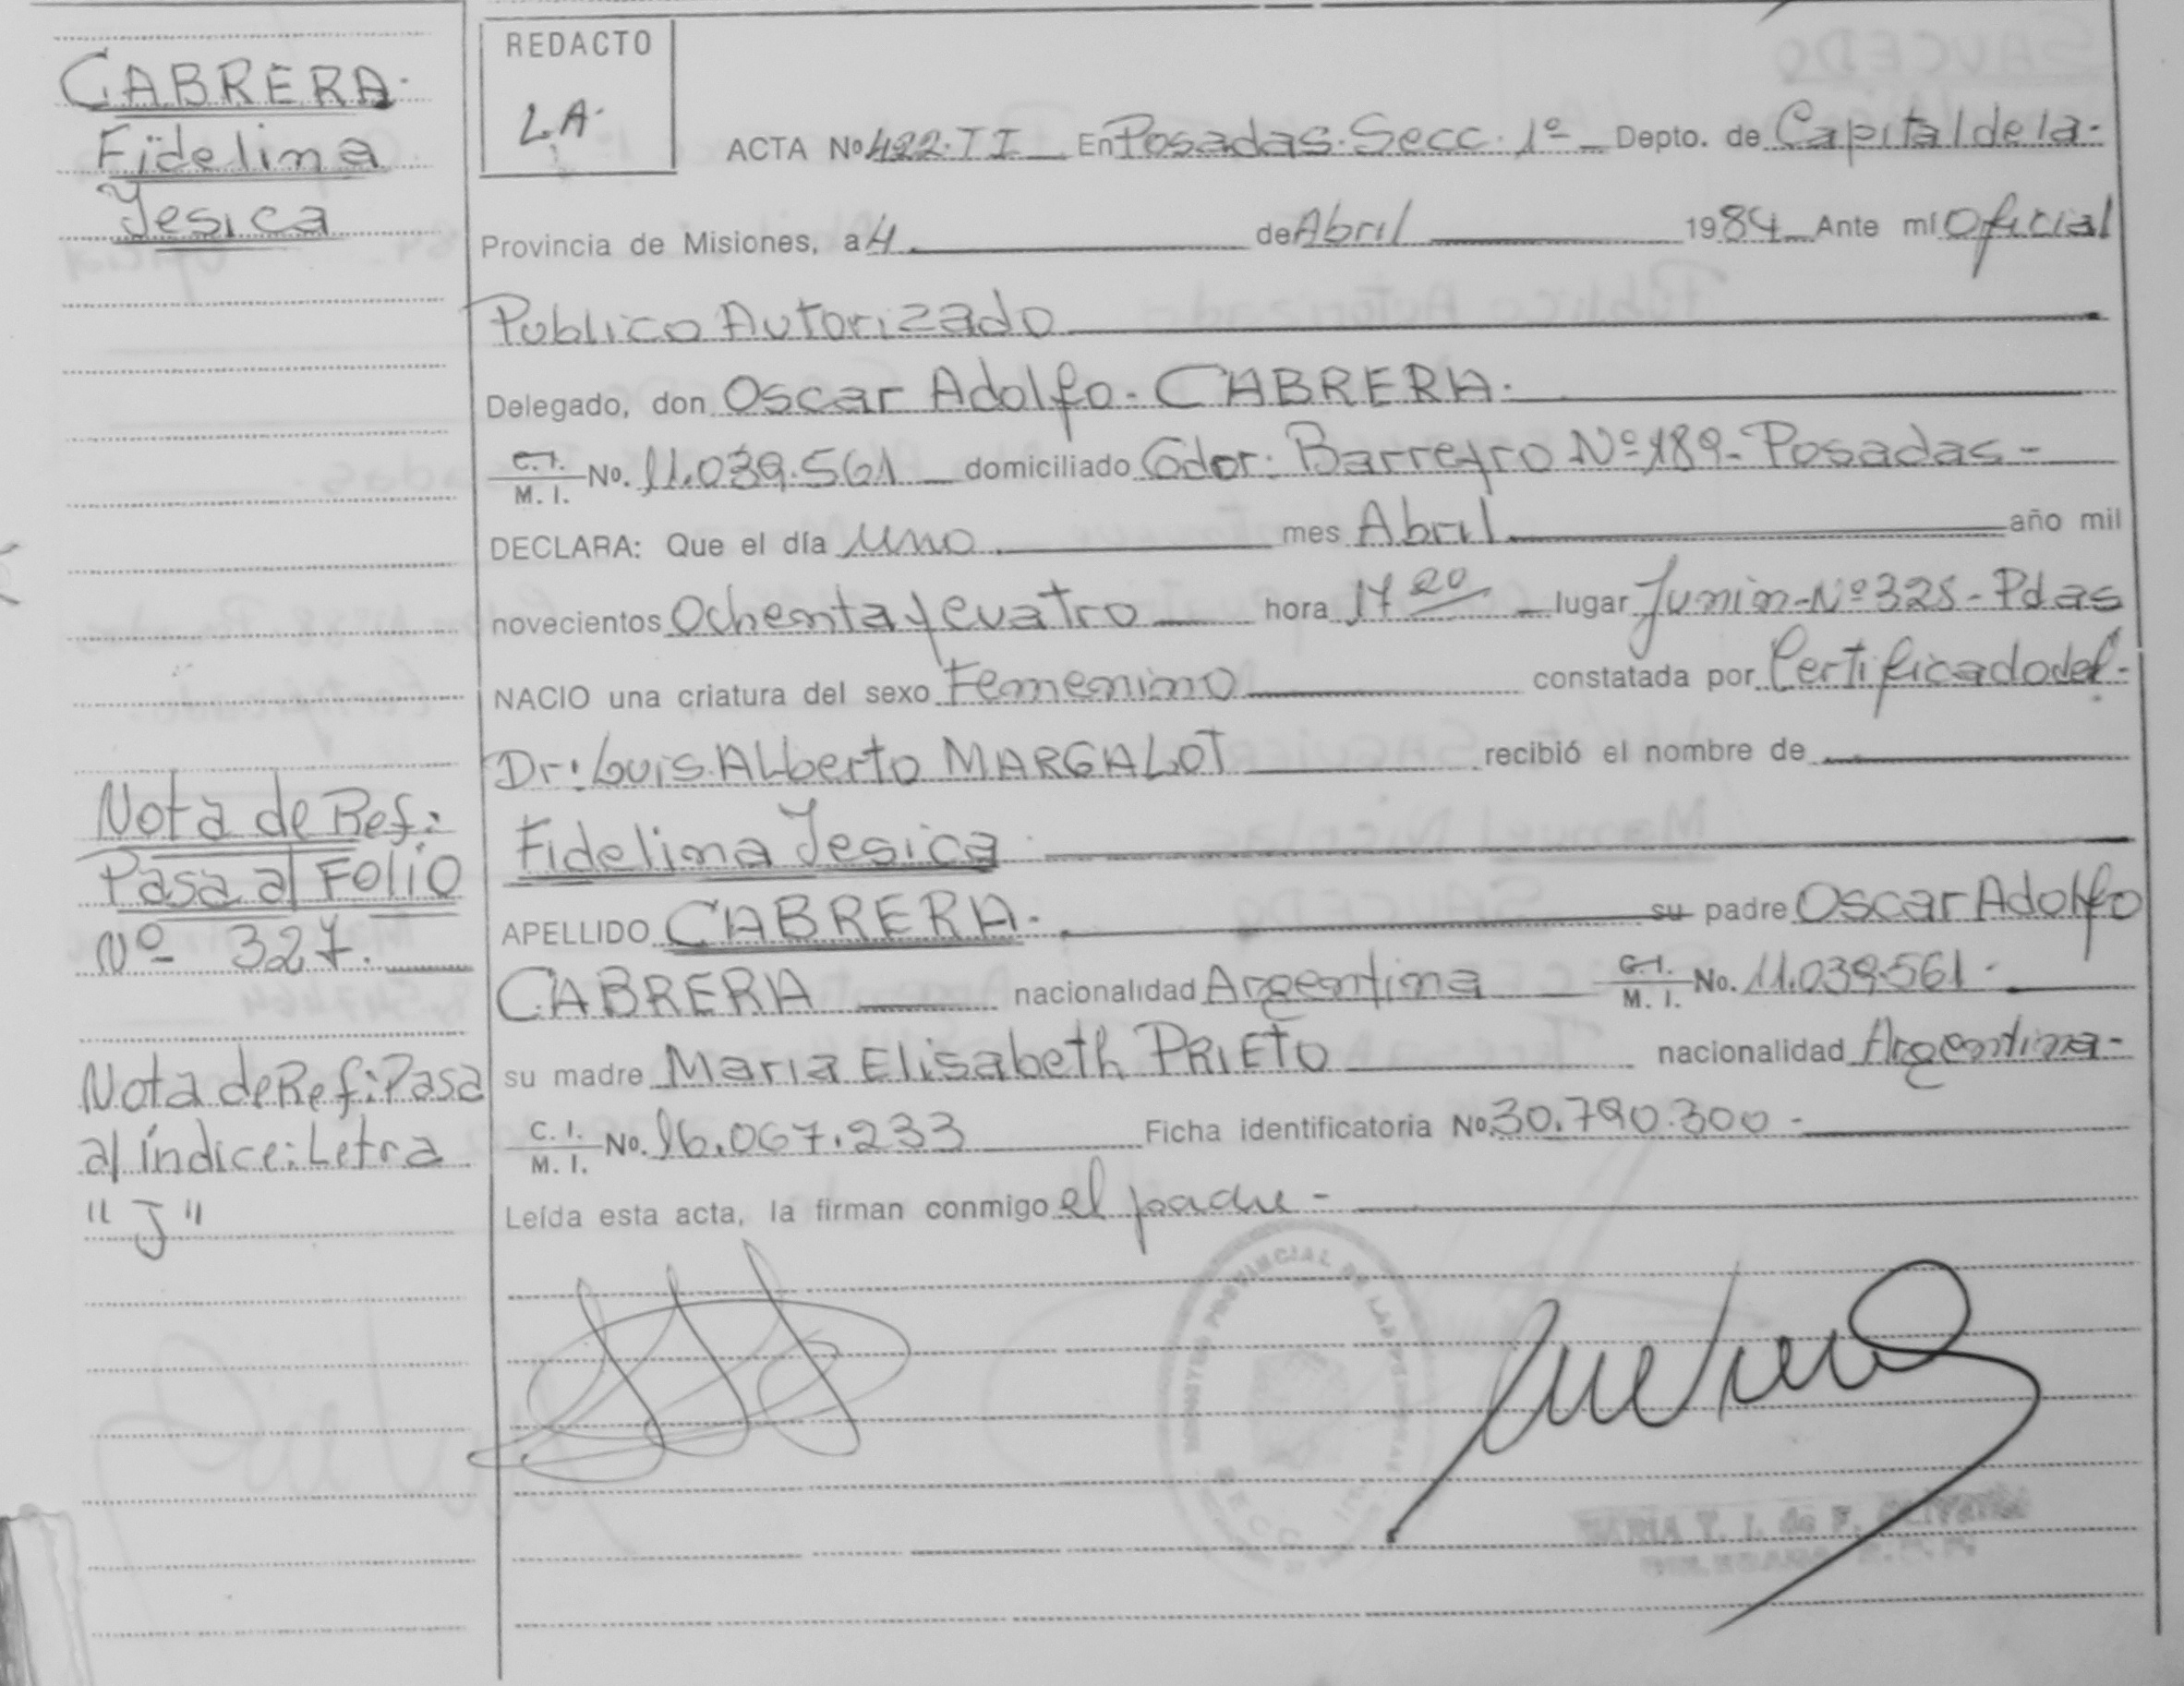 CABRERA.
Fidelina
Jesica
Nota de Ref:
Pasa al FOLIO
Nº 327.
Nota de Ref: Pasa
al índice: Letra
"J"
REDACTO
L.A.
ACTA Nº 422. T I En Posadas. Secc. 1º Depto. de Capital de la.
Provincia de Misiones, a 4. de Abril 1984 Ante mí Oficial
Publico Autorizado
Delegado, don Oscar Adolfo. CABRERA.
C. I. M. I. No. 11.039.561 domiciliado Gdor. Barreyro Nº 189- Posadas-
DECLARA: Que el día uno mes Abril año mil
novecientos Ochenta y cuatro hora 17 20 lugar Junin-Nº 325- Pdas
NACIO una criatura del sexo Femenino constatada por Certificado del-
Dr: Luis Alberto MARGALOT recibió el nombre de
Fidelina Jesica
APELLIDO CABRERA. su padre Oscar Adolfo
CABRERA nacionalidad Argentina C. I. M. I. No. 11.039.561.
su madre Maria Elisabeth PRIETO nacionalidad Argentina-
C. I. M. I. No. 16.067.233 Ficha identificatoria No. 30.790.300-
Leída esta acta, la firman conmigo el padre-
PROVINCIAL DE LAS
MARIA T. I. de F.